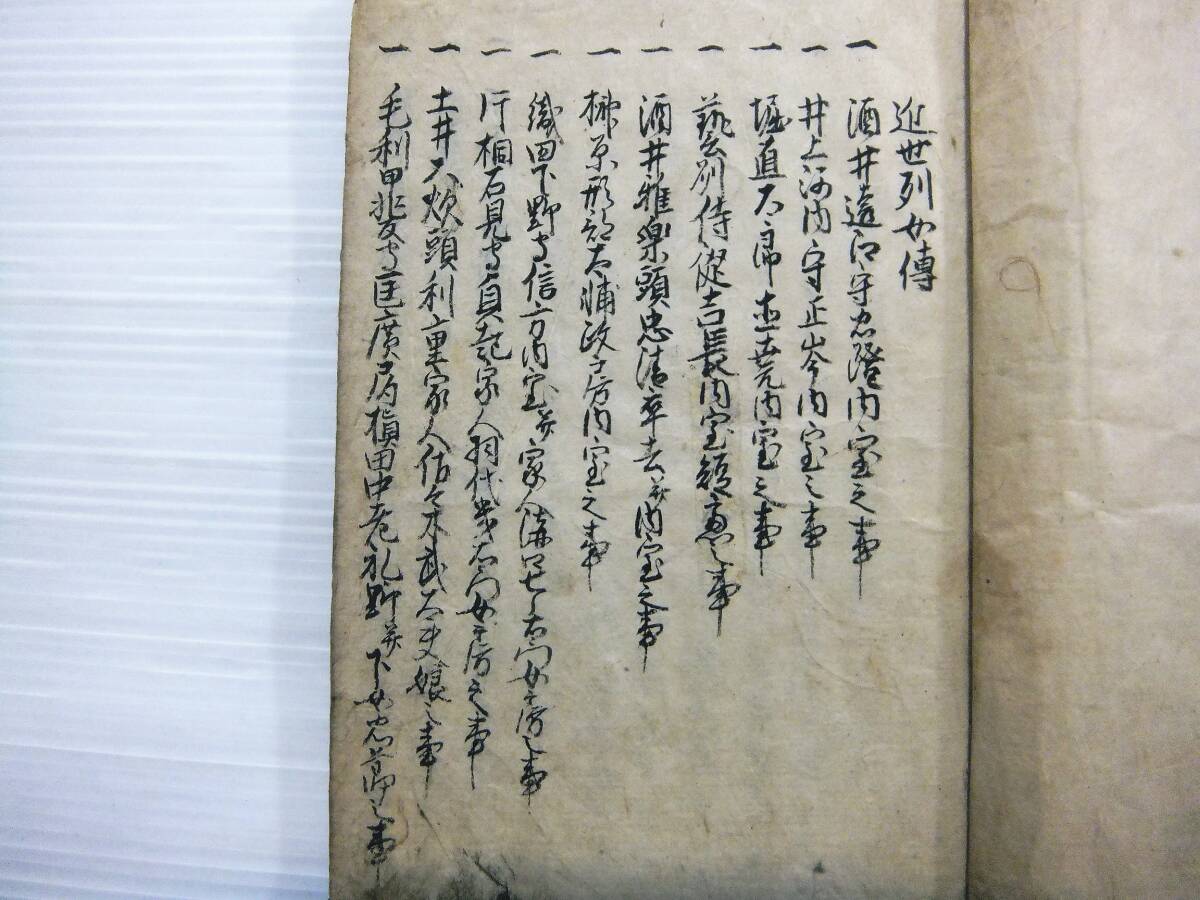 近世列女傳
一 酒井遠江守忠隆内室之事
一 井上河内守正岑内室之事
一 堀直右衛門内室之事
一 藝刕侍従吉長内室之事
一 酒井雅楽頭忠清卒去并内室之事
一 榊原刑部太輔政房内室之事
一 織田下野守信方内室并家人溝口七右衛門女房之事
一 片桐石見守貞起家人羽代右衛門女房之事
一 土井大炊頭利重家人佐々木武太夫娘之事
一 毛利甲斐守匡廣局槇田中老礼野并下女忠節之事